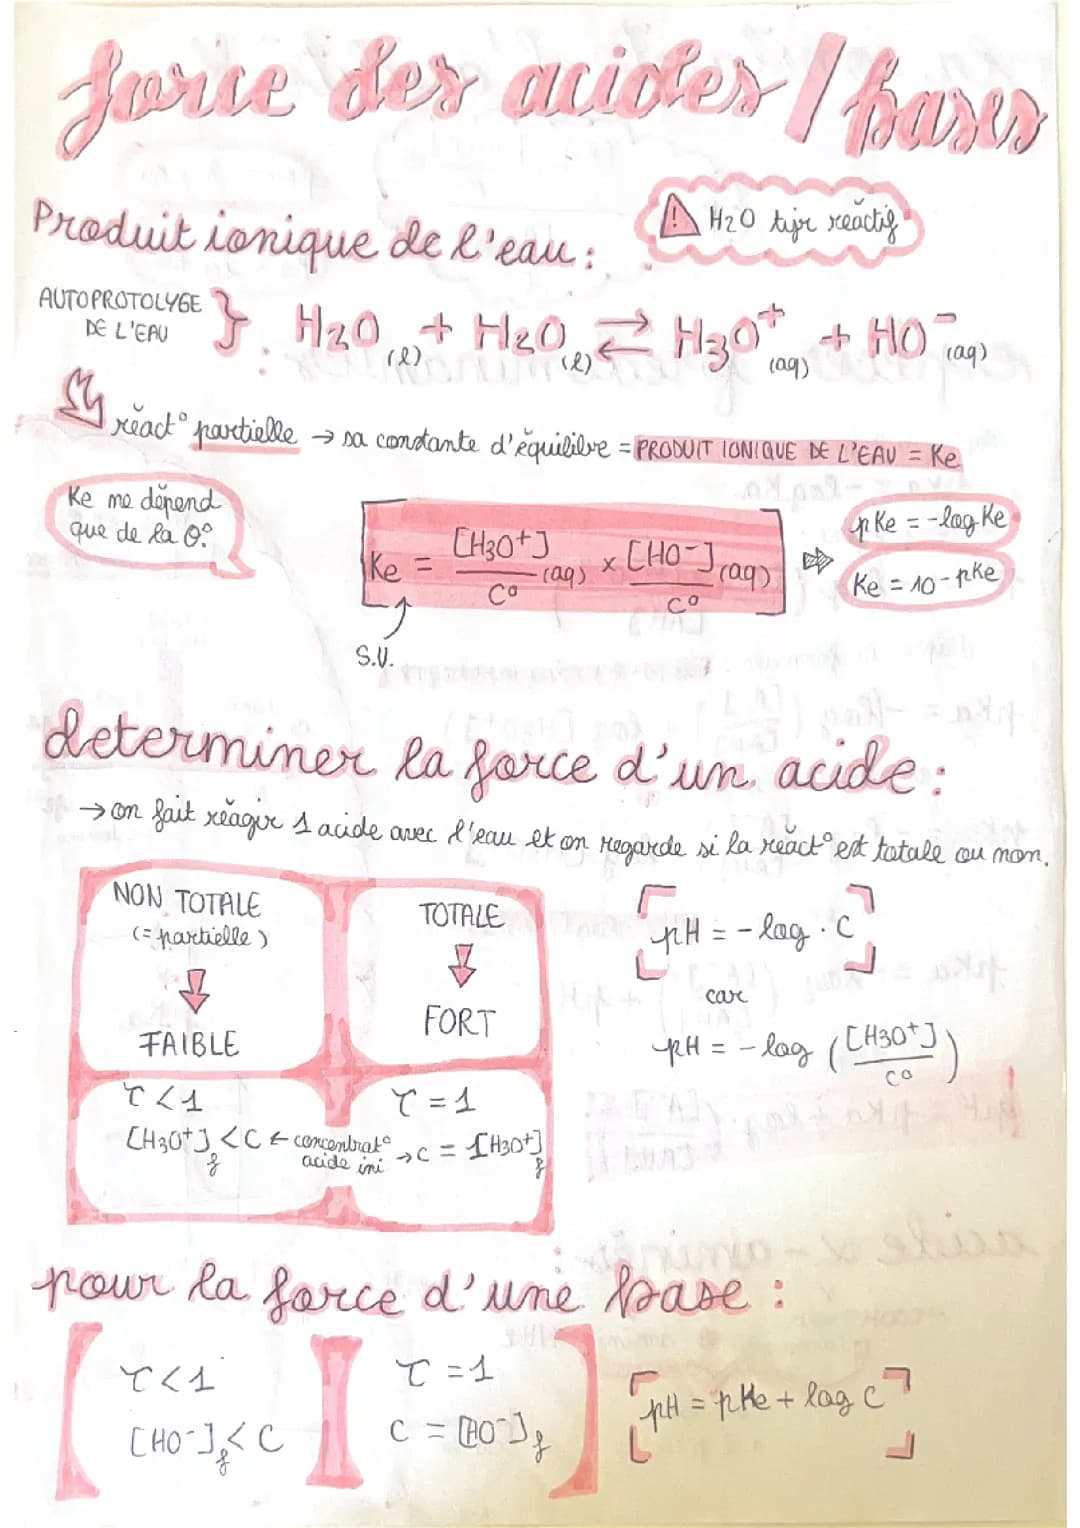 force des acides / bases
Produit ionique de l'eau :
⚠ H2O tjr réactif
AUTOPROTOLYSE
DE L'EAU } : H2O (l) + H2O (l) ⇄ H3O+ (aq) + HO- (aq)
réact° partielle → sa constante d'équilibre = PRODUIT IONIQUE DE L'EAU = Ke
Ke ne dépend
que de la θ°
Ke = [H3O+] (aq) / C° × [HO-] (aq) / C°
S.U.
⇒ pKe = -log Ke
Ke = 10 -pKe
determiner la force d'un acide :
→ on fait réagir 1 acide avec l'eau et on regarde si la réact° est totale ou non.
NON TOTALE
(= partielle)
FAIBLE
τ < 1
[H3O+]f < C ← concentrat° acide ini
TOTALE
FORT
τ = 1
→ C = [H3O+]f
pH = - log · C
car
pH = - log ([H3O+] / C°)
pour la force d'une base :
τ < 1
[HO-]f < C
τ = 1
C = [HO-]f
pH = pKe + log C